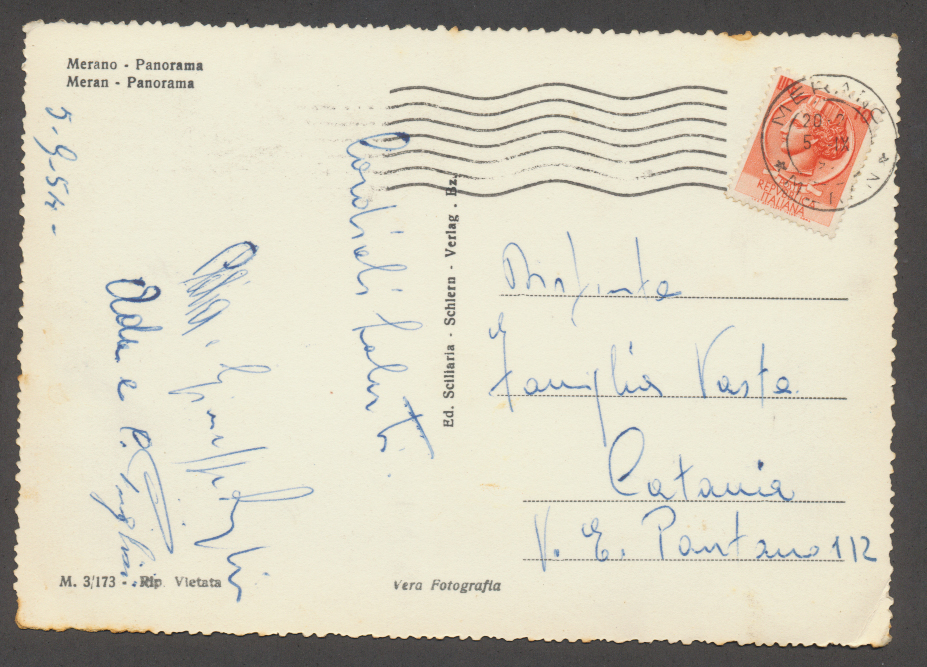 Merano - Panorama
Meran - Panorama
5-9-54-
Cordiali saluti.
Ada e P.
Ed. Sciliaria - Schlern - Verlag - Bz.
MERANO
20
5 IX
REPUBBLICA
ITALIANA
Distinta
Famiglia Vasta
Catania
V. E. Pantano 112
M. 3/173 - Rip. Vietata
Vera Fotografia